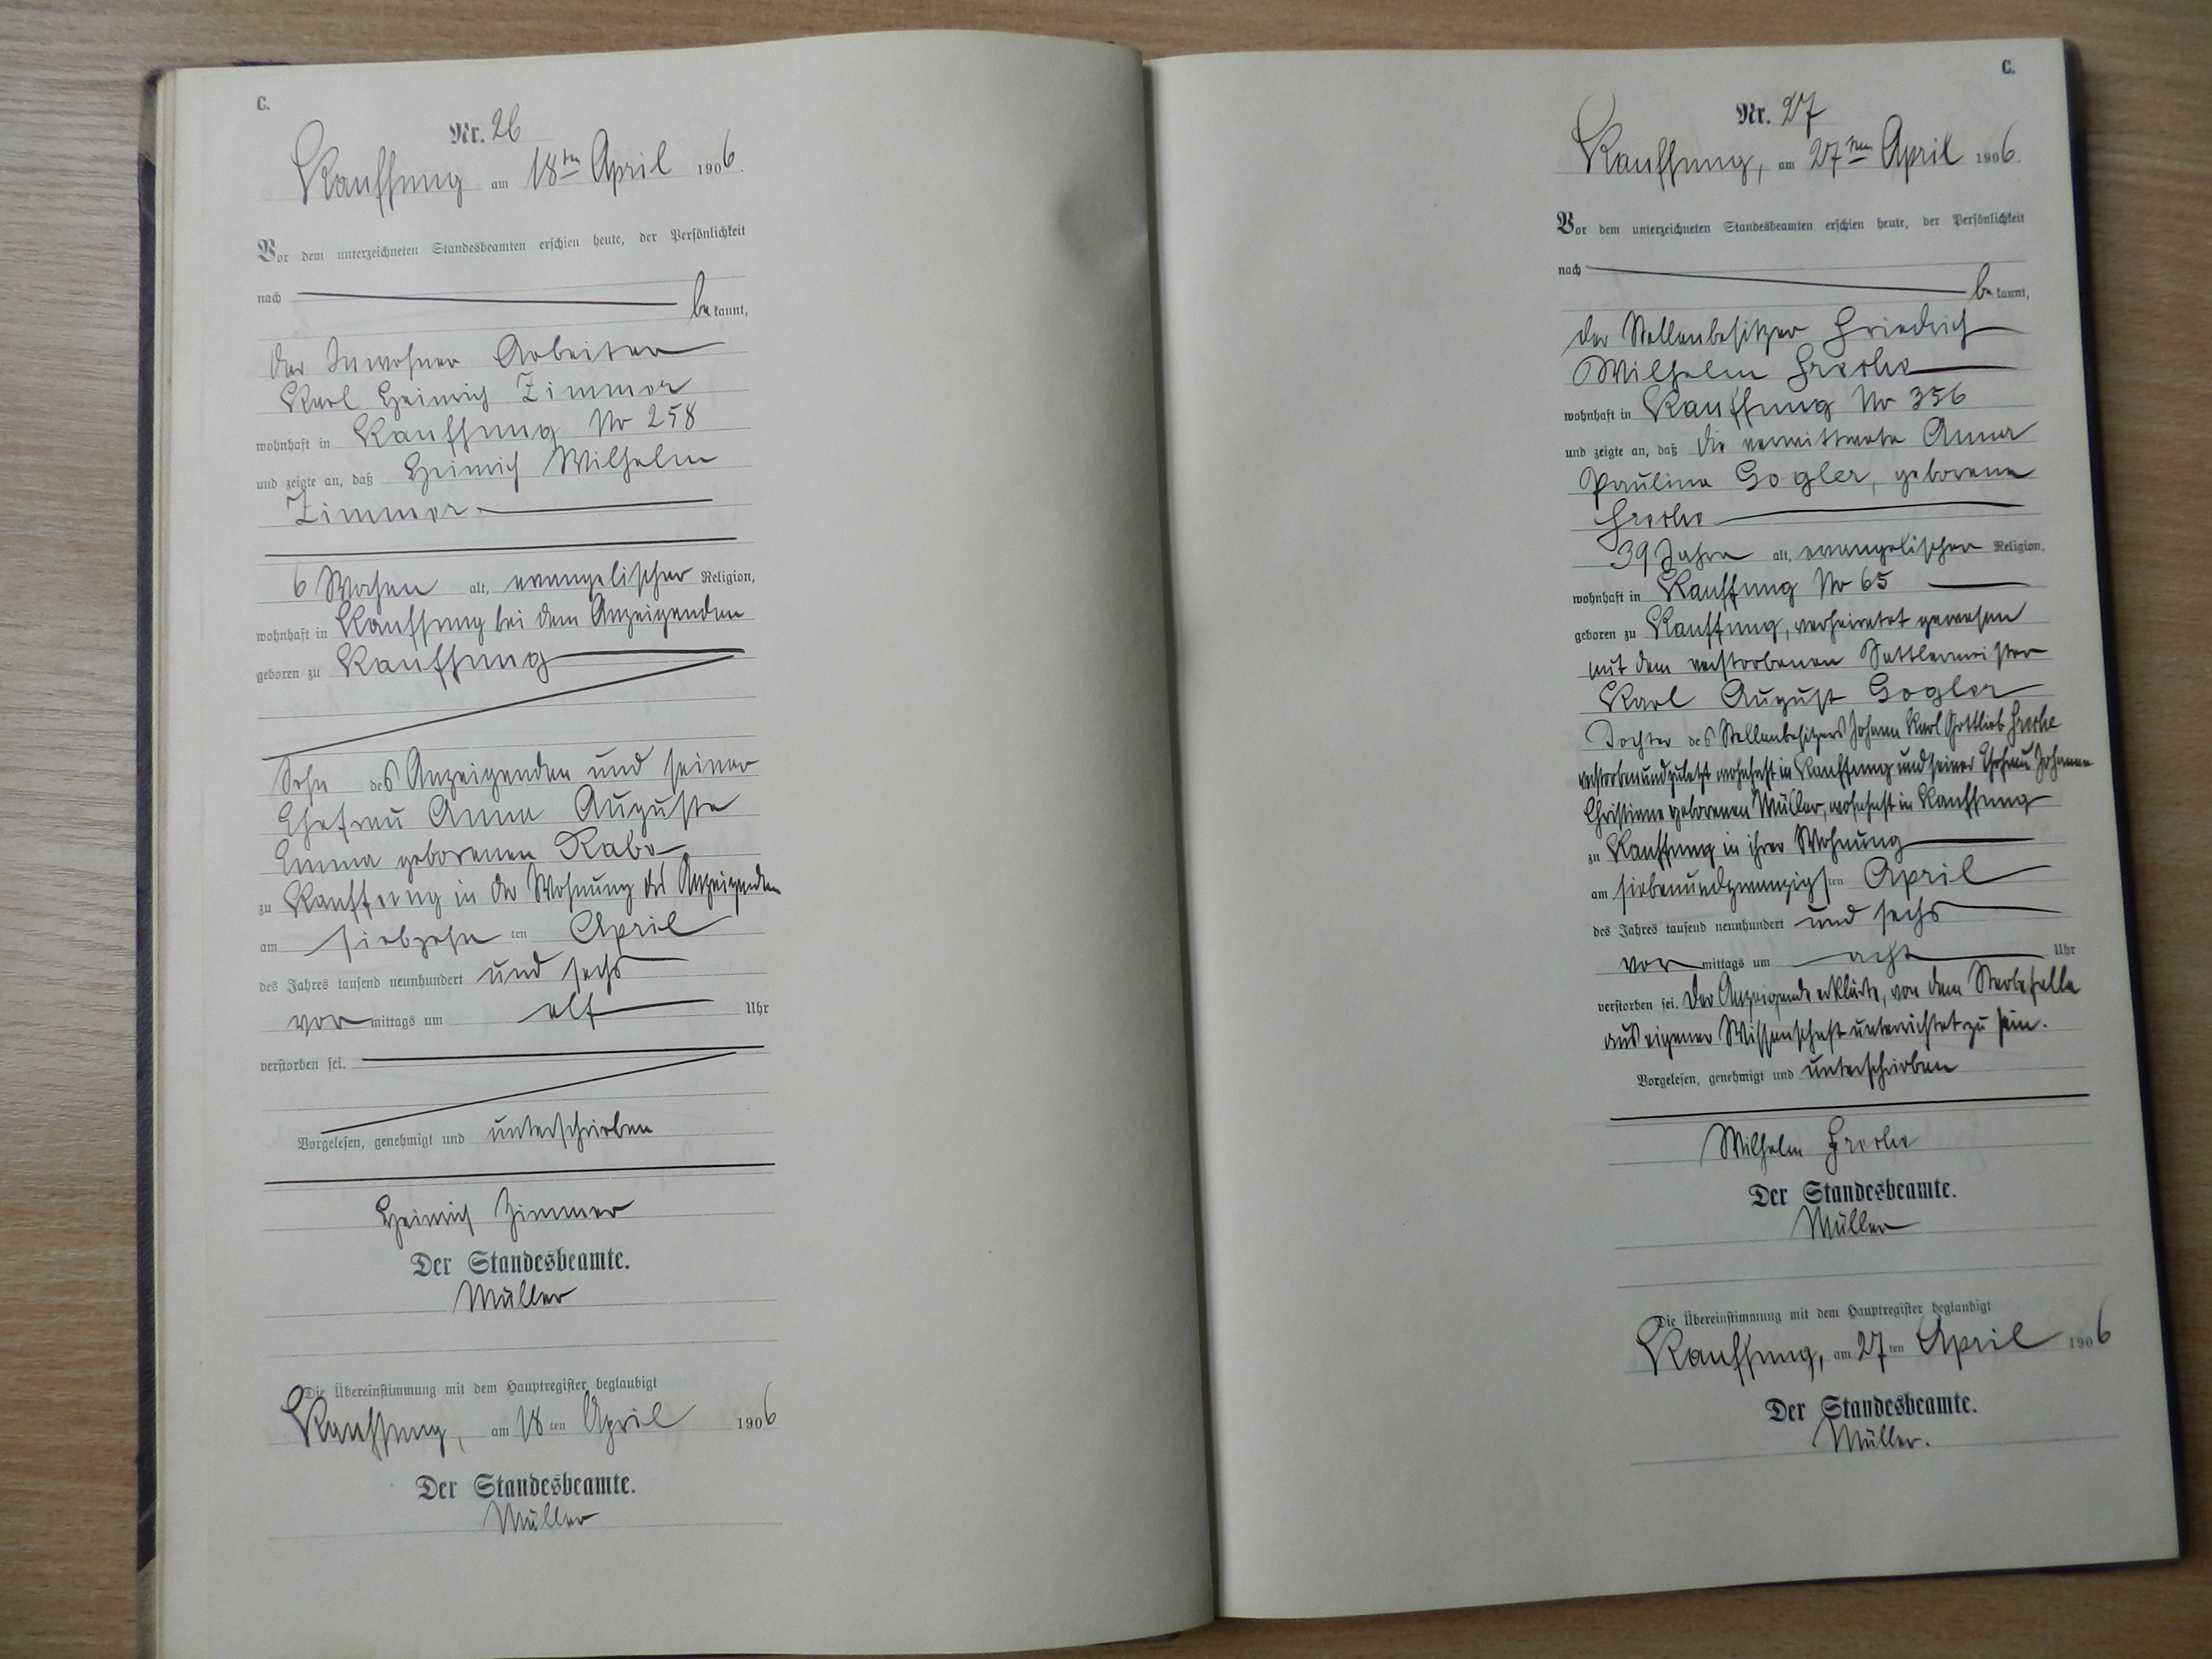 C.
Nr. 26
Kauffung am 18ten April 1906.
Vor dem unterzeichneten Standesbeamten erschien heute, der Persönlichkeit
nach bekannt,
der Inwohner Arbeiter
Karl Heinrich Zimmer
wohnhaft in Kauffung No 258
und zeigte an, daß Heinrich Wilhelm
Zimmer
6 Wochen alt, evangelischer Religion,
wohnhaft in Kauffung bei dem Anzeigenden
geboren zu Kauffung
Sohn des Anzeigenden und seiner
Ehefrau Anna Auguste
Emma geborenen Rabe
zu Kauffung in der Wohnung des Anzeigenden
am siebzehnten April
des Jahres tausend neunhundert und sechs
vormittags um elf Uhr
verstorben sei.
Vorgelesen, genehmigt und unterschrieben
Heinrich Zimmer
Der Standesbeamte.
Müller
Die Übereinstimmung mit dem Hauptregister beglaubigt
Kauffung, am 18ten April 1906
Der Standesbeamte.
Müller
C.
Nr. 27
Kauffung, am 27ten April 1906.
Vor dem unterzeichneten Standesbeamten erschien heute, der Persönlichkeit
nach bekannt,
der Stellenbesitzer Friedrich
Wilhelm
wohnhaft in Kauffung No 356
und zeigte an, daß die verwittwete Anna
Pauline Gogler, geborene
39 Jahre alt, evangelischer Religion,
wohnhaft in Kauffung No 65
geboren zu Kauffung, verheiratet gewesen
mit dem verstorbenen Sattlermeister
Karl August Gogler
Tochter des Stellenbesitzers Johann Karl Gottlieb
verstorben und zuletzt wohnhaft in Kauffung und seiner Ehefrau Johanne
Christiane geborenen Müller, wohnhaft in Kauffung
zu Kauffung in ihrer Wohnung
am siebenundzwanzigsten April
des Jahres tausend neunhundert und sechs
vormittags um acht Uhr
verstorben sei. Der Anzeigende erklärte, von dem Sterbefalle
aus eigener Wissenschaft unterrichtet zu sein.
Vorgelesen, genehmigt und unterschrieben
Wilhelm
Der Standesbeamte.
Müller
Die Übereinstimmung mit dem Hauptregister beglaubigt
Kauffung, am 27ten April 1906
Der Standesbeamte.
Müller.